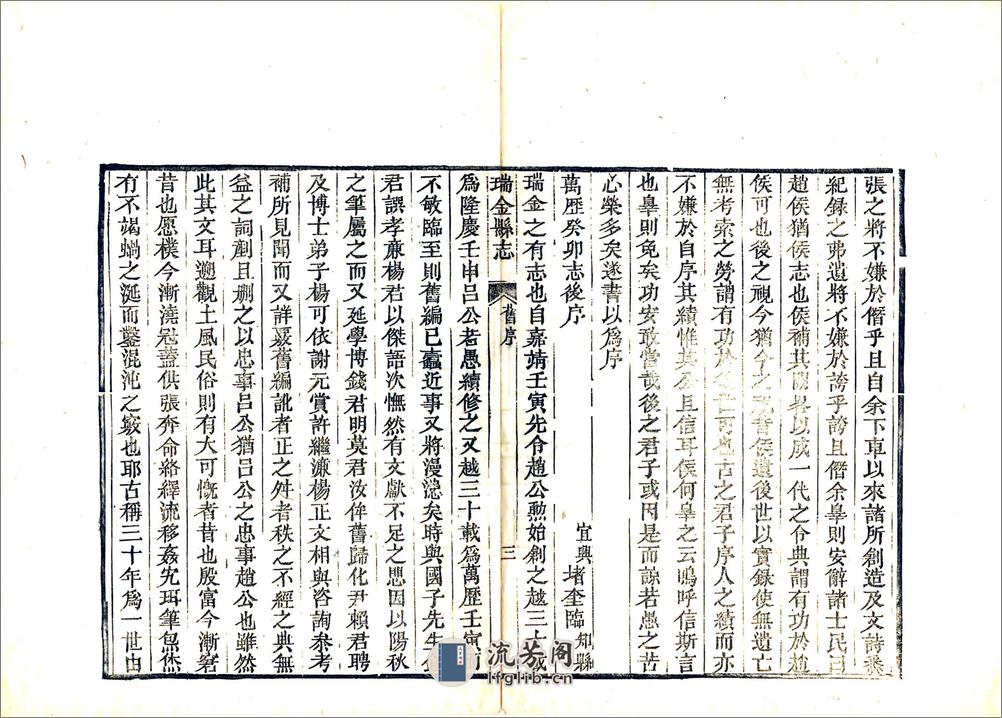 張之將不嫌於僭乎且自余下車以來諸所創造及文詩悉
紀錄之弗遺將不嫌於誇乎且僭余辠則安辭諸士民曰
趙侯猶侯志也侯補其闕畧以成一代之令典謂有功於趙
侯可也後之視今猶今之視昔侯遺後世以實錄使無遺亡
無考索之勞謂有功於後世可也古之君子序人之績而亦
不嫌於自序其績惟其公且信耳侯何辠之云嗚呼信斯言
也辠則免矣功安敢當哉後之君子或因是而諒若愚之苦
心榮多矣遂書以爲序
萬歷癸卯志後序
宜興堵奎臨知縣
瑞金之有志也自嘉靖壬寅先令趙公勲始創之越三十載
爲隆慶壬申呂公若愚續修之又越三十載爲萬歷壬寅而
瑞金縣志 舊序 三
不敏臨至則舊編已蠹近事又將漫漶矣時與國子先生
君譔孝亷楊君以傑語次憮然有文獻不足之悲因以陽秋
之筆屬之而又延學博錢君明莫君汝侔舊歸化尹賴君聘
及博士弟子楊可依謝元賞許繼濂楊正文相與咨詢叅考
補所見聞而又詳覈舊編訛者正之舛者秩之不經之典無
益之詞劃且刪之以忠事呂公猶呂公之忠事趙公也雖然
此其文耳遡觀土風民俗則有大可慨者昔也殷富今漸窘
昔也愿樸今漸澆冠蓋供張奔命絡繹流移姦宄珥筆
有不竭蝸之涎而鑿混沌之竅也耶古稱三十年爲一世由
流芳阁
lfglib.cn